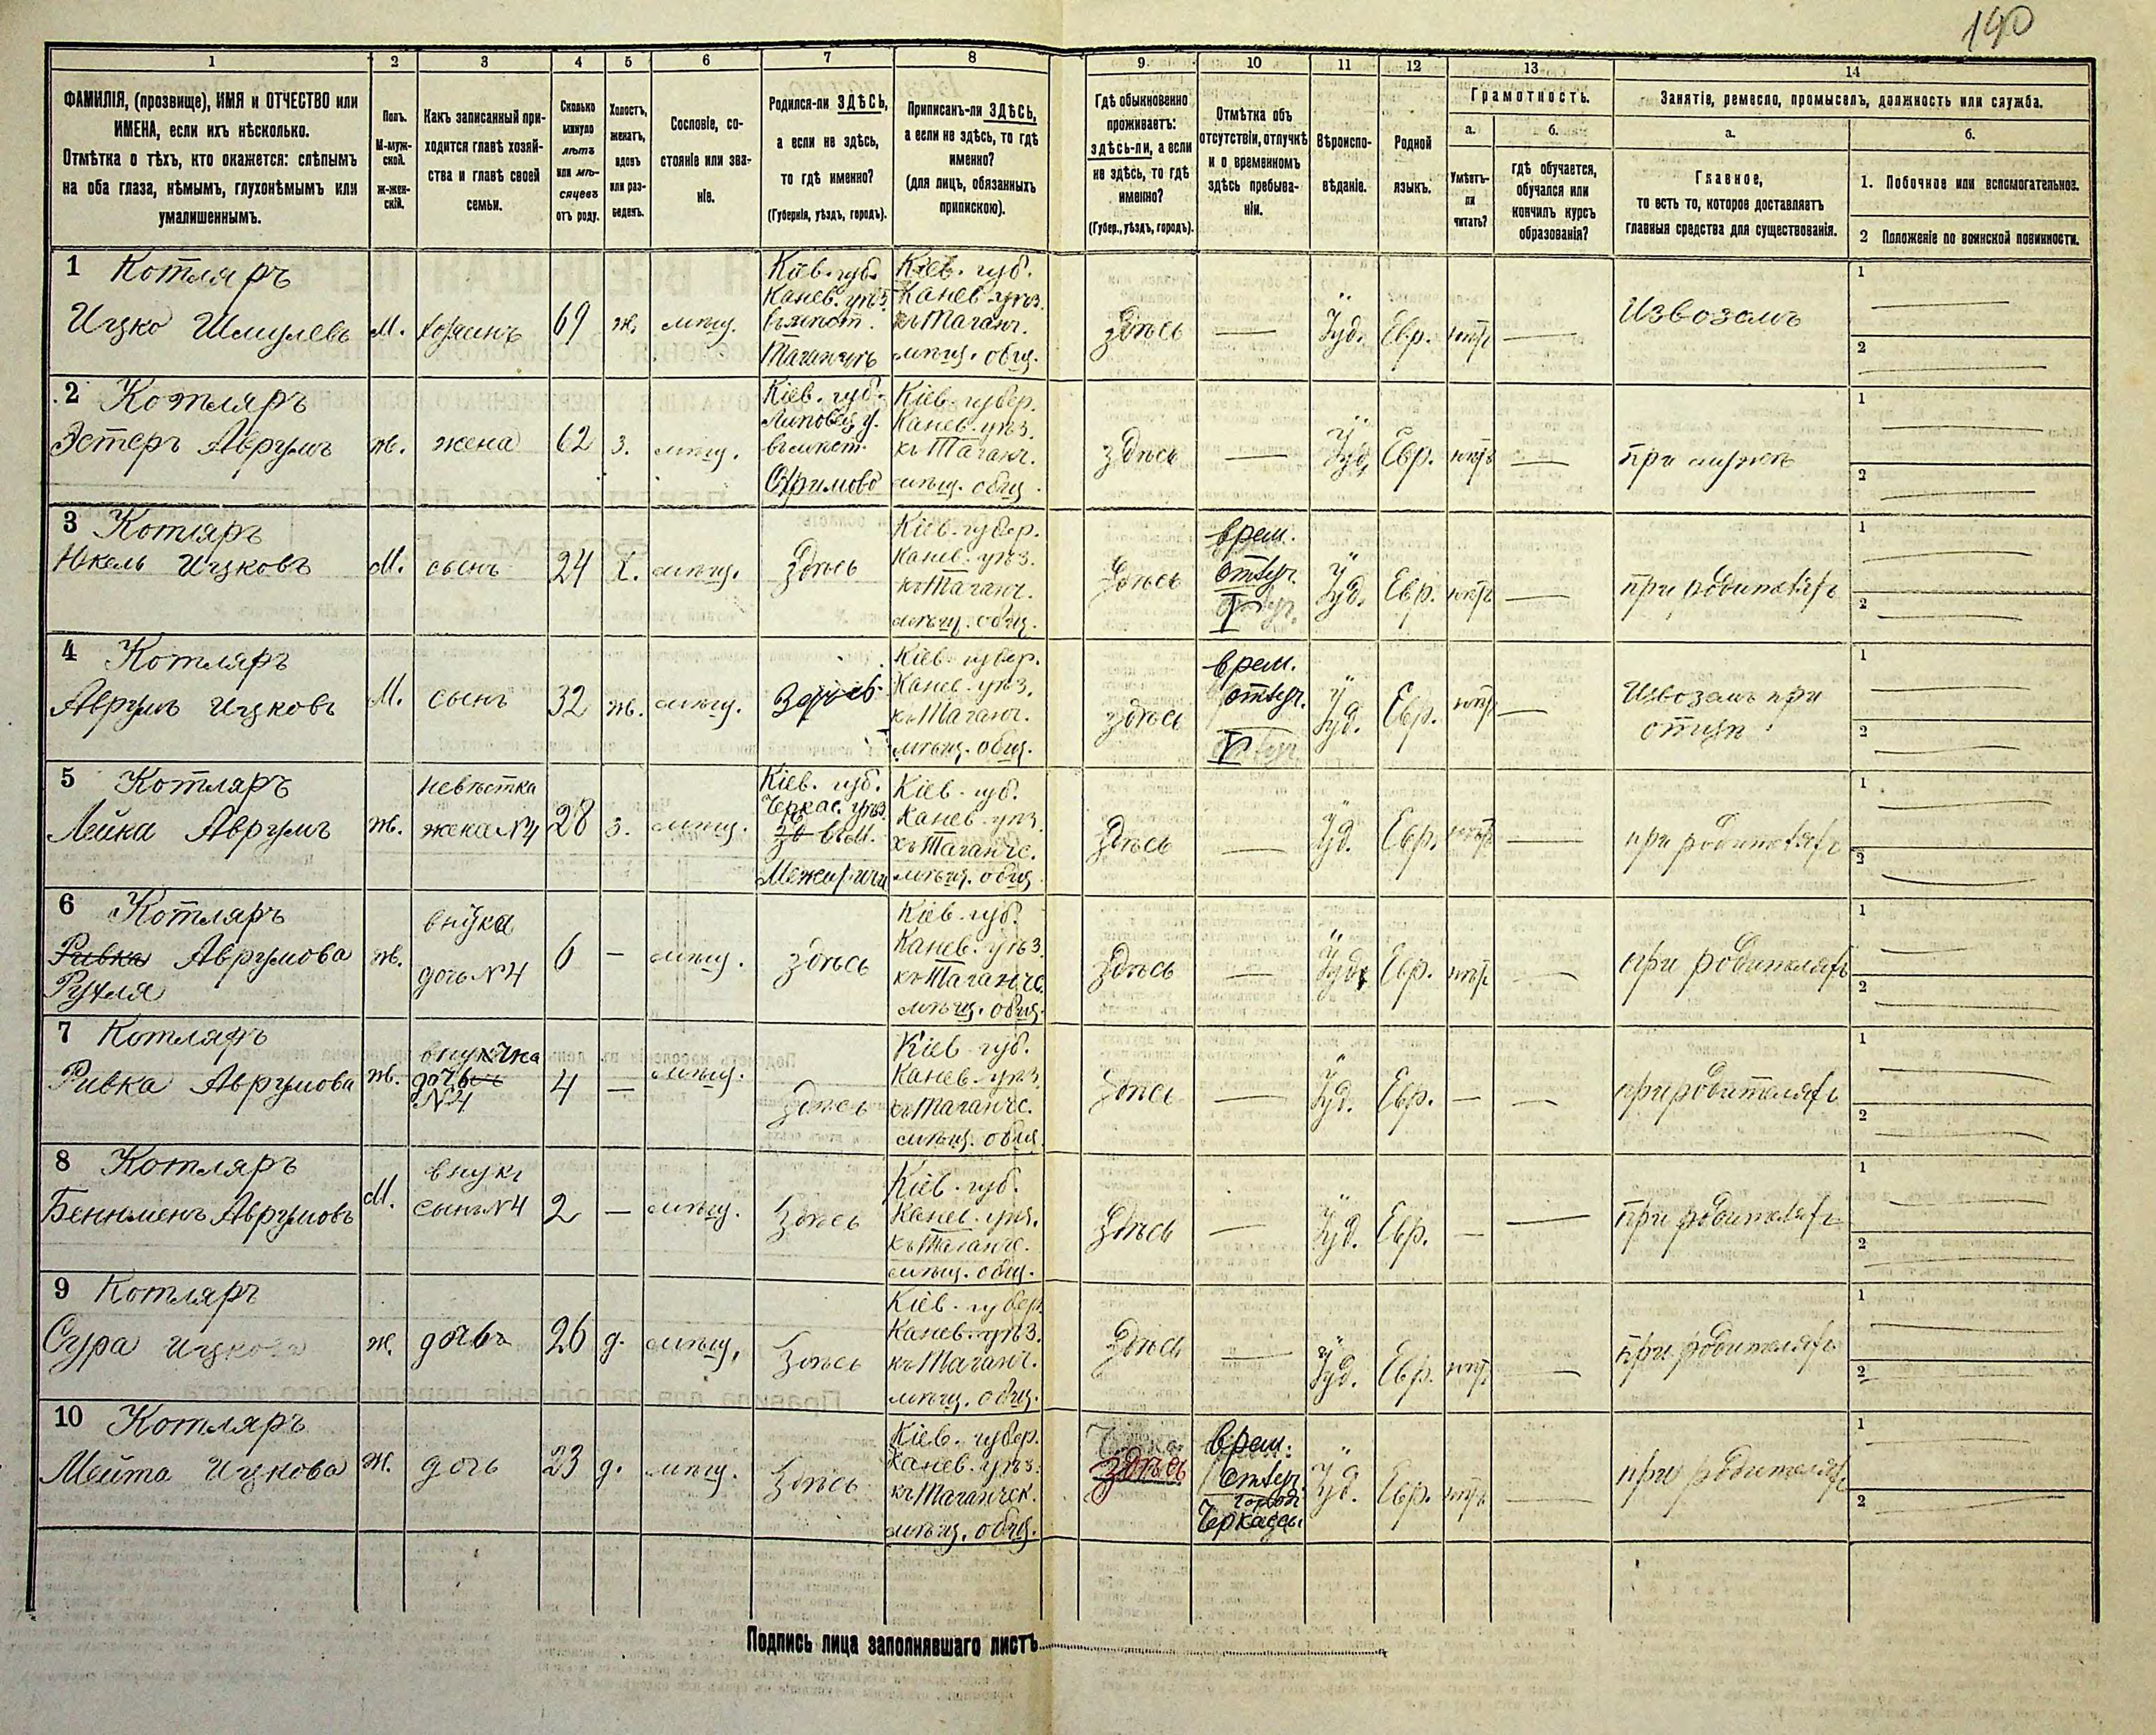 190
1 2 3 4 5 6 7 8 9 10 11 12 13 14
ФАМИЛІЯ, (прозвище), ИМЯ и ОТЧЕСТВО или
ИМЕНА, если ихъ нѣсколько.
Отмѣтка о тѣхъ, кто окажется: слѣпымъ
на оба глаза, нѣмымъ, глухонѣмымъ или
умалишеннымъ.
Полъ.
М-муж-
ской.
ж-жен-
скій.
Какъ записанный при-
ходится главѣ хозяй-
ства и главѣ своей
семьи.
Сколько
минуло
лѣтъ
или мѣ-
сяцевъ
отъ роду.
Холостъ,
женатъ,
вдовъ
или раз-
веденъ.
Сословіе, со-
стояніе или зва-
ніе.
Родился-ли ЗДѢСЬ,
а если не здѣсь,
то гдѣ именно?
(Губернія, уѣздъ, городъ).
Приписанъ-ли ЗДѢСЬ,
а если не здѣсь, то гдѣ
именно?
(для лицъ, обязанныхъ
припискою).
Гдѣ обыкновенно
проживаетъ:
здѣсь-ли, а если
не здѣсь, то гдѣ
именно?
(Губер., уѣздъ, городъ).
Отмѣтка объ
отсутствіи, отлучкѣ
и о временномъ
здѣсь пребыва-
ніи.
Вѣроиспо-
вѣданіе.
Родной
языкъ.
Грамотность.
а.
Умѣетъ-
ли
читать?
б.
гдѣ обучается,
обучался или
кончилъ курсъ
образованія?
Занятіе, ремесло, промыселъ, должность или служба.
а.
Главное,
то есть то, которое доставляетъ
главныя средства для существованія.
б.
1. Побочное или вспомогательное.
2 Положеніе по воинской повинности.
1 Котляръ
Ицко Шмулевъ м. хозяинъ 69 ж. мѣщ.
Кіев. губ.
Канев. уѣз.
въ мѣст.
Таганчѣ
Кіев. губ.
Канев. уѣз.
къ Таганч.
мѣщ. общ.
здѣсь — Іуд. Евр. нѣтъ — Извозомъ
1
2
2 Котляръ
Эстеръ Аврумъ ж. жена 62 з. мѣщ.
Кіев. губ.
Липовец. у.
въ мѣст.
Кіев. губер.
Канев. уѣз.
къ Таганч.
мѣщ. общ.
здѣсь — Іуд. Евр. нѣтъ — при мужѣ
1
2
3 Котляръ
Ицковъ М. сынъ 24 х. мѣщ. Здѣсь
Кіев. губер.
Канев. уѣз.
къ Таганч.
мѣщ. общ.
Здѣсь
врем.
отлуч.
Іуд. Евр. нѣтъ — при родителяхъ
1
2
4 Котляръ
Аврумъ Ицковъ М. сынъ 32 ж. мѣщ. Здѣсь
Кіев. губер.
Канев. уѣз.
къ Таганч.
мѣщ. общ.
здѣсь
врем.
отлуч.
Іуд. Евр. нѣтъ —
Извозомъ при
отцѣ
1
2
5 Котляръ
Лейка Аврумъ ж.
невѣстка
жена №4 28 з. мѣщ.
Кіев. губ.
Черкас. уѣз.
въ М.
Межиричи
Кіев. губ.
Канев. уѣз.
къ Таганчс.
мѣщ. общ.
Здѣсь — Іуд. Евр. нѣтъ — при родителяхъ
1
2
6 Котляръ
Ривка Аврумова ж.
Рухля
внука
дочь №4 6 — мѣщ. здѣсь
Кіев. губ.
Канев. уѣз.
къ Таганчс.
мѣщ. общ.
Здѣсь — Іуд. Евр. нѣтъ — при родителяхъ
1
2
7 Котляръ
Ривка Аврумова ж.
внучка
дочь
№4 4 — мѣщ. Здѣсь
Кіев. губ.
Канев. уѣз.
къ Таганчс.
мѣщ. общ.
Здѣсь — Іуд. Евр. — — при родителяхъ
1
2
8 Котляръ
Беньменъ Аврумовъ М.
внукъ
сынъ №4 2 — мѣщ. Здѣсь
Кіев. губ.
Канев. уѣз.
къ Таганчс.
мѣщ. общ.
Здѣсь — Іуд. Евр. — — при родителяхъ
1
2
9 Котляръ
Сура Ицкова ж. дочь 26 д. мѣщ. Здѣсь
Кіев. губер.
Канев. уѣз.
къ Таганч.
мѣщ. общ.
Здѣсь — Іуд. Евр. нѣтъ — при родителяхъ
1
2
10 Котляръ
Мейта Ицкова ж. дочь 23 д. мѣщ. Здѣсь
Кіев. губер.
Канев. уѣз.
къ Таганчск.
мѣщ. общ.
Здѣсь
врем.
отлуч.
город
Черкассы
Іуд. Евр. нѣтъ — при родителяхъ
1
2
Подпись лица заполнявшаго листъ